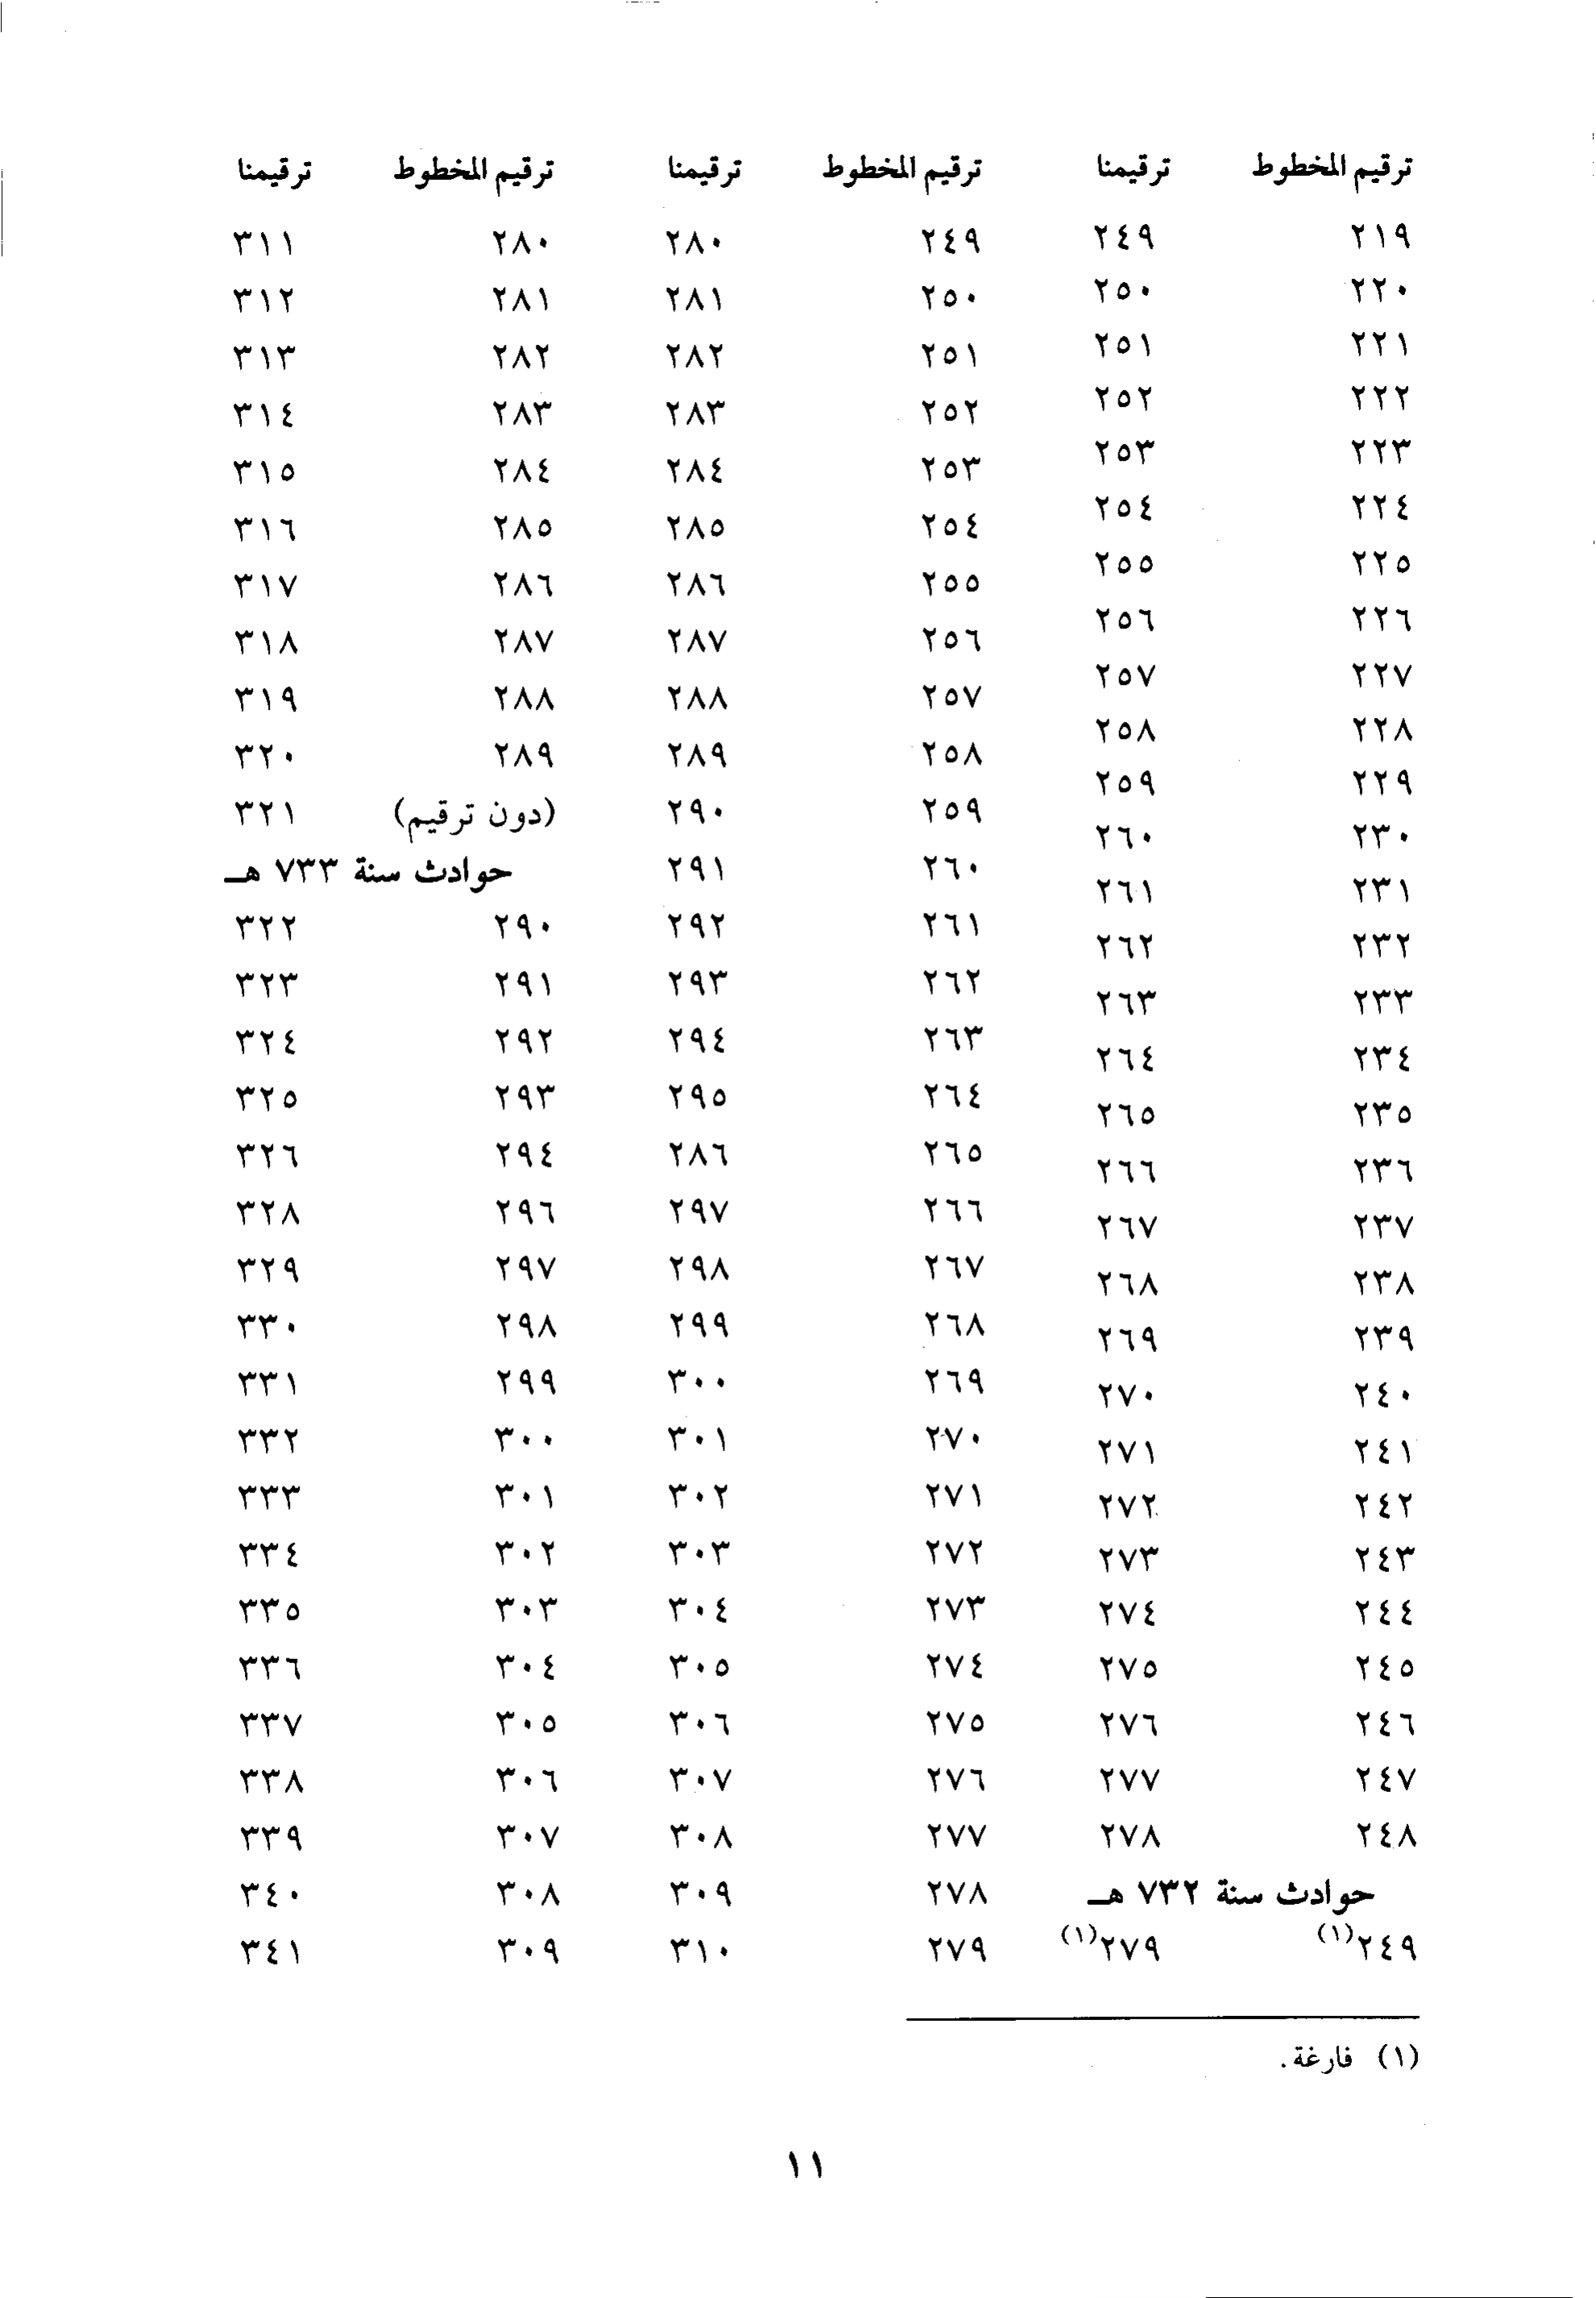 ترقيم المخطوط ترقيمنا
٢١٩ ٢٤٩
٢٢٠ ٢٥٠
٢٢١ ٢٥١
٢٢٢ ٢٥٢
٢٢٣ ٢٥٣
٢٢٤ ٢٥٤
٢٢٥ ٢٥٥
٢٢٦ ٢٥٦
٢٢٧ ٢٥٧
٢٢٨ ٢٥٨
٢٢٩ ٢٥٩
٢٣٠ ٢٦٠
٢٣١ ٢٦١
٢٣٢ ٢٦٢
٢٣٣ ٢٦٣
٢٣٤ ٢٦٤
٢٣٥ ٢٦٥
٢٣٦ ٢٦٦
٢٣٧ ٢٦٧
٢٣٨ ٢٦٨
٢٣٩ ٢٦٩
٢٤٠ ٢٧٠
٢٤١ ٢٧١
٢٤٢ ٢٧٢
٢٤٣ ٢٧٣
٢٤٤ ٢٧٤
٢٤٥ ٢٧٥
٢٤٦ ٢٧٦
٢٤٧ ٢٧٧
٢٤٨ ٢٧٨
حوادث سنة ٧٣٢ هـ
٢٤٩(١) ٢٧٩(١)
ترقيم المخطوط ترقيمنا
٢٤٩ ٢٨٠
٢٥٠ ٢٨١
٢٥١ ٢٨٢
٢٥٢ ٢٨٣
٢٥٣ ٢٨٤
٢٥٤ ٢٨٥
٢٥٥ ٢٨٦
٢٥٦ ٢٨٧
٢٥٧ ٢٨٨
٢٥٨ ٢٨٩
٢٥٩ ٢٩٠
٢٦٠ ٢٩١
٢٦١ ٢٩٢
٢٦٢ ٢٩٣
٢٦٣ ٢٩٤
٢٦٤ ٢٩٥
٢٦٥ ٢٨٦
٢٦٦ ٢٩٧
٢٦٧ ٢٩٨
٢٦٨ ٢٩٩
٢٦٩ ٣٠٠
٢٧٠ ٣٠١
٢٧١ ٣٠٢
٢٧٢ ٣٠٣
٢٧٣ ٣٠٤
٢٧٤ ٣٠٥
٢٧٥ ٣٠٦
٢٧٦ ٣٠٧
٢٧٧ ٣٠٨
٢٧٨ ٣٠٩
٢٧٩ ٣١٠
ترقيم المخطوط ترقيمنا
٢٨٠ ٣١١
٢٨١ ٣١٢
٢٨٢ ٣١٣
٢٨٣ ٣١٤
٢٨٤ ٣١٥
٢٨٥ ٣١٦
٢٨٦ ٣١٧
٢٨٧ ٣١٨
٢٨٨ ٣١٩
٢٨٩ ٣٢٠
(دون ترقيم) ٣٢١
حوادث سنة ٧٣٣ هـ
٢٩٠ ٣٢٢
٢٩١ ٣٢٣
٢٩٢ ٣٢٤
٢٩٣ ٣٢٥
٢٩٤ ٣٢٦
٢٩٦ ٣٢٨
٢٩٧ ٣٢٩
٢٩٨ ٣٣٠
٢٩٩ ٣٣١
٣٠٠ ٣٣٢
٣٠١ ٣٣٣
٣٠٢ ٣٣٤
٣٠٣ ٣٣٥
٣٠٤ ٣٣٦
٣٠٥ ٣٣٧
٣٠٦ ٣٣٨
٣٠٧ ٣٣٩
٣٠٨ ٣٤٠
٣٠٩ ٣٤١
(١) فارغة.
١١